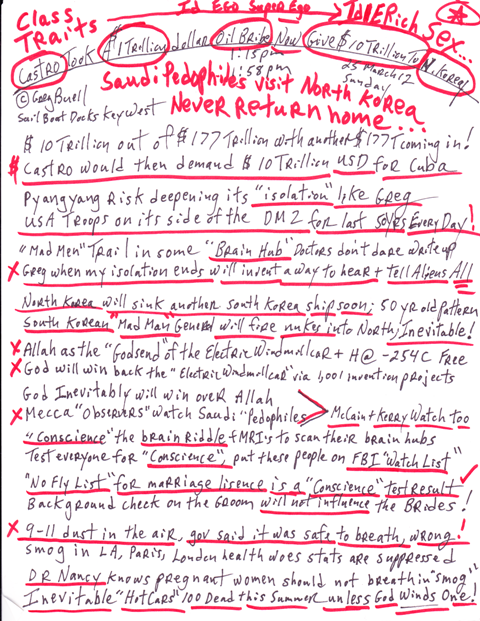 Class Traits
Id Ego Super Ego
Id Erich
Sex...
Castro Took A $1 Trillion dollar Oil Bribe Now Give $10 Trillion To N. Korea
1:15pm
1:58pm
25 March 12
Sunday
© Greg Buell
Sail Boat Docks Key West
Saudi Pedophiles visit North Korea
Never Return home...
$10 Trillion out of $177 Trillion with another $177T coming in!
$ Castro would then demand $10 Trillion USD for Cuba
Pyangyang Risk deepening its "isolation" like Greg
USA Troops on its side of the DMZ for last 50 yrs Every Day!
"Mad Men" Trail in some "Brain Hub" Doctors don't dare write up
x Greg when my isolation ends will invent a way to hear + tell Aliens All
North Korea will sink another south Korea ship soon; 50 yr old pattern
South Korean "Mad Man" General will fire nukes into North, Inevitable!
x Allah as the "Godsend" of the ElectricWindmillcar + H@ -254C Free
x God will win back the "ElectricWindmillcar" via 1,001 invention projects
God Inevitably will win over Allah
x Mecca "Observers" watch Saudi "Pedophiles > McCain + Kerry Watch too
"Conscience" the brain Riddle fMRI's to scan their brain hubs
Test everyone for "Conscience", put these people on FBI "Watch List"
"No Fly List" for marriage lisence is a "Conscience" test Result
Background check on the Groom will not influence the Brides!
x 9-11 dust in the air, gov said it was safe to breath, wrong!
smog in LA, Paris, London health woes stats are suppressed
DR Nancy knows pregnant women should not breath in "smog"
Inevitable "Hot Cars" 100 Dead this Summer unless God Winds One!